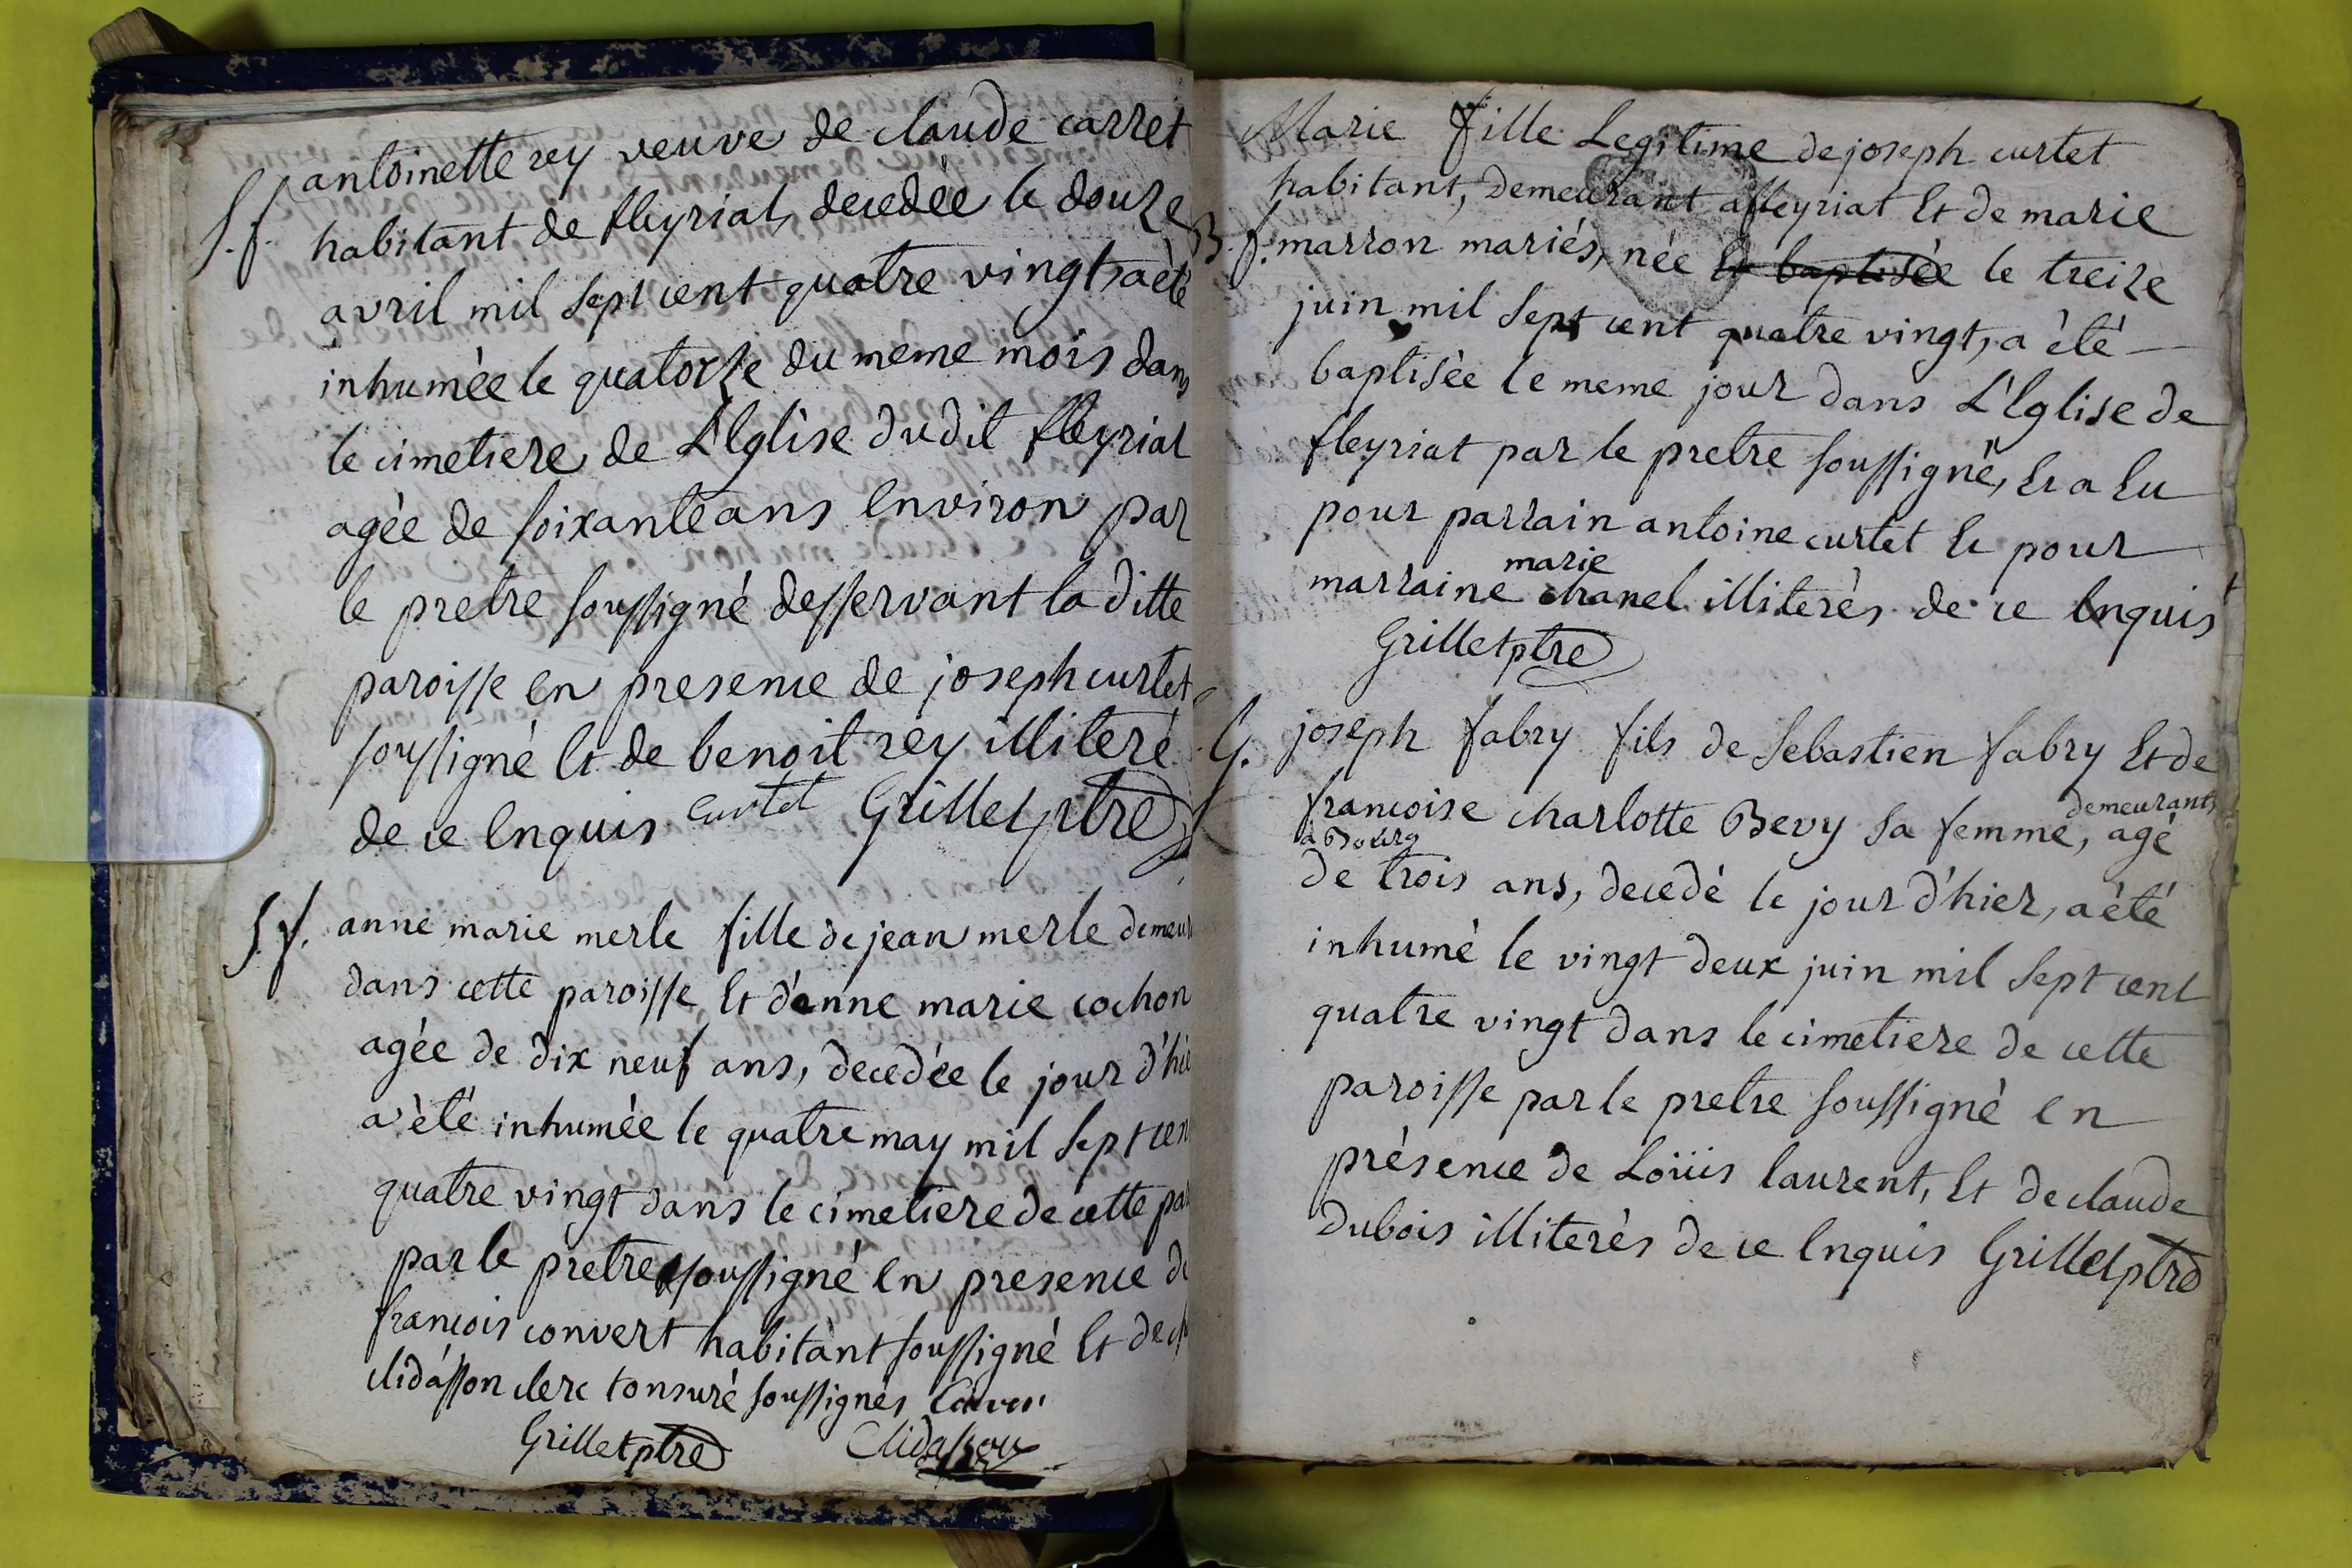 antoinette rey veuve de claude carret
S. f.
habitant de fleyriat, decedèe le douze
avril mil sept cent quatre vingt, a èté
inhumèe le quatorze du meme mois dans
le cimetiere de L'Eglise dudit fleyriat
agèe de soixante ans Environ par
le pretre soussigné desservant la ditte
paroisse En presence de joseph curtet
soussigné Et de benoit rey illiteré
de ce Enquis curtet Grillet ptre
S. f. anne marie merle fille de jean merle demeur
dans cette paroisse Et d'anne marie cochon
agée de dix neuf ans, decedée le jour d'hie
a èté inhumée le quatre may mil sept cen
quatre vingt dans le cimetiere de cette par
par le pretre soussigné En presence de
francois convert habitant soussigné Et de
clidasson clerc tonsuré soussignés
Grillet ptre Clidasson
Marie fille Legitime de joseph curtet
habitant, demeurant a fleyriat Et de marie
B. f. marron mariés, née Et baptisèe le treize
juin mil sept cent quatre vingt, a èté
baptisèe le meme jour dans L'Eglise de
fleyriat par le pretre soussigné, Et a Eu
pour parrain antoine curtet Et pour
marie
marraine chanel illiterès de ce Enquis
Grillet ptre
G. joseph fabry fils de Sebastien fabry Et de
francoise charlotte Bevy sa femme, demeurants agé
a Bourg
de trois ans, decedé le jour d'hier, a èté
inhumé le vingt deux juin mil sept cent
quatre vingt dans le cimetiere de cette
paroisse par le pretre soussigné En
présence de Loüis laurent, Et de claude
dubois illiterès de ce Enquis Grillet ptre